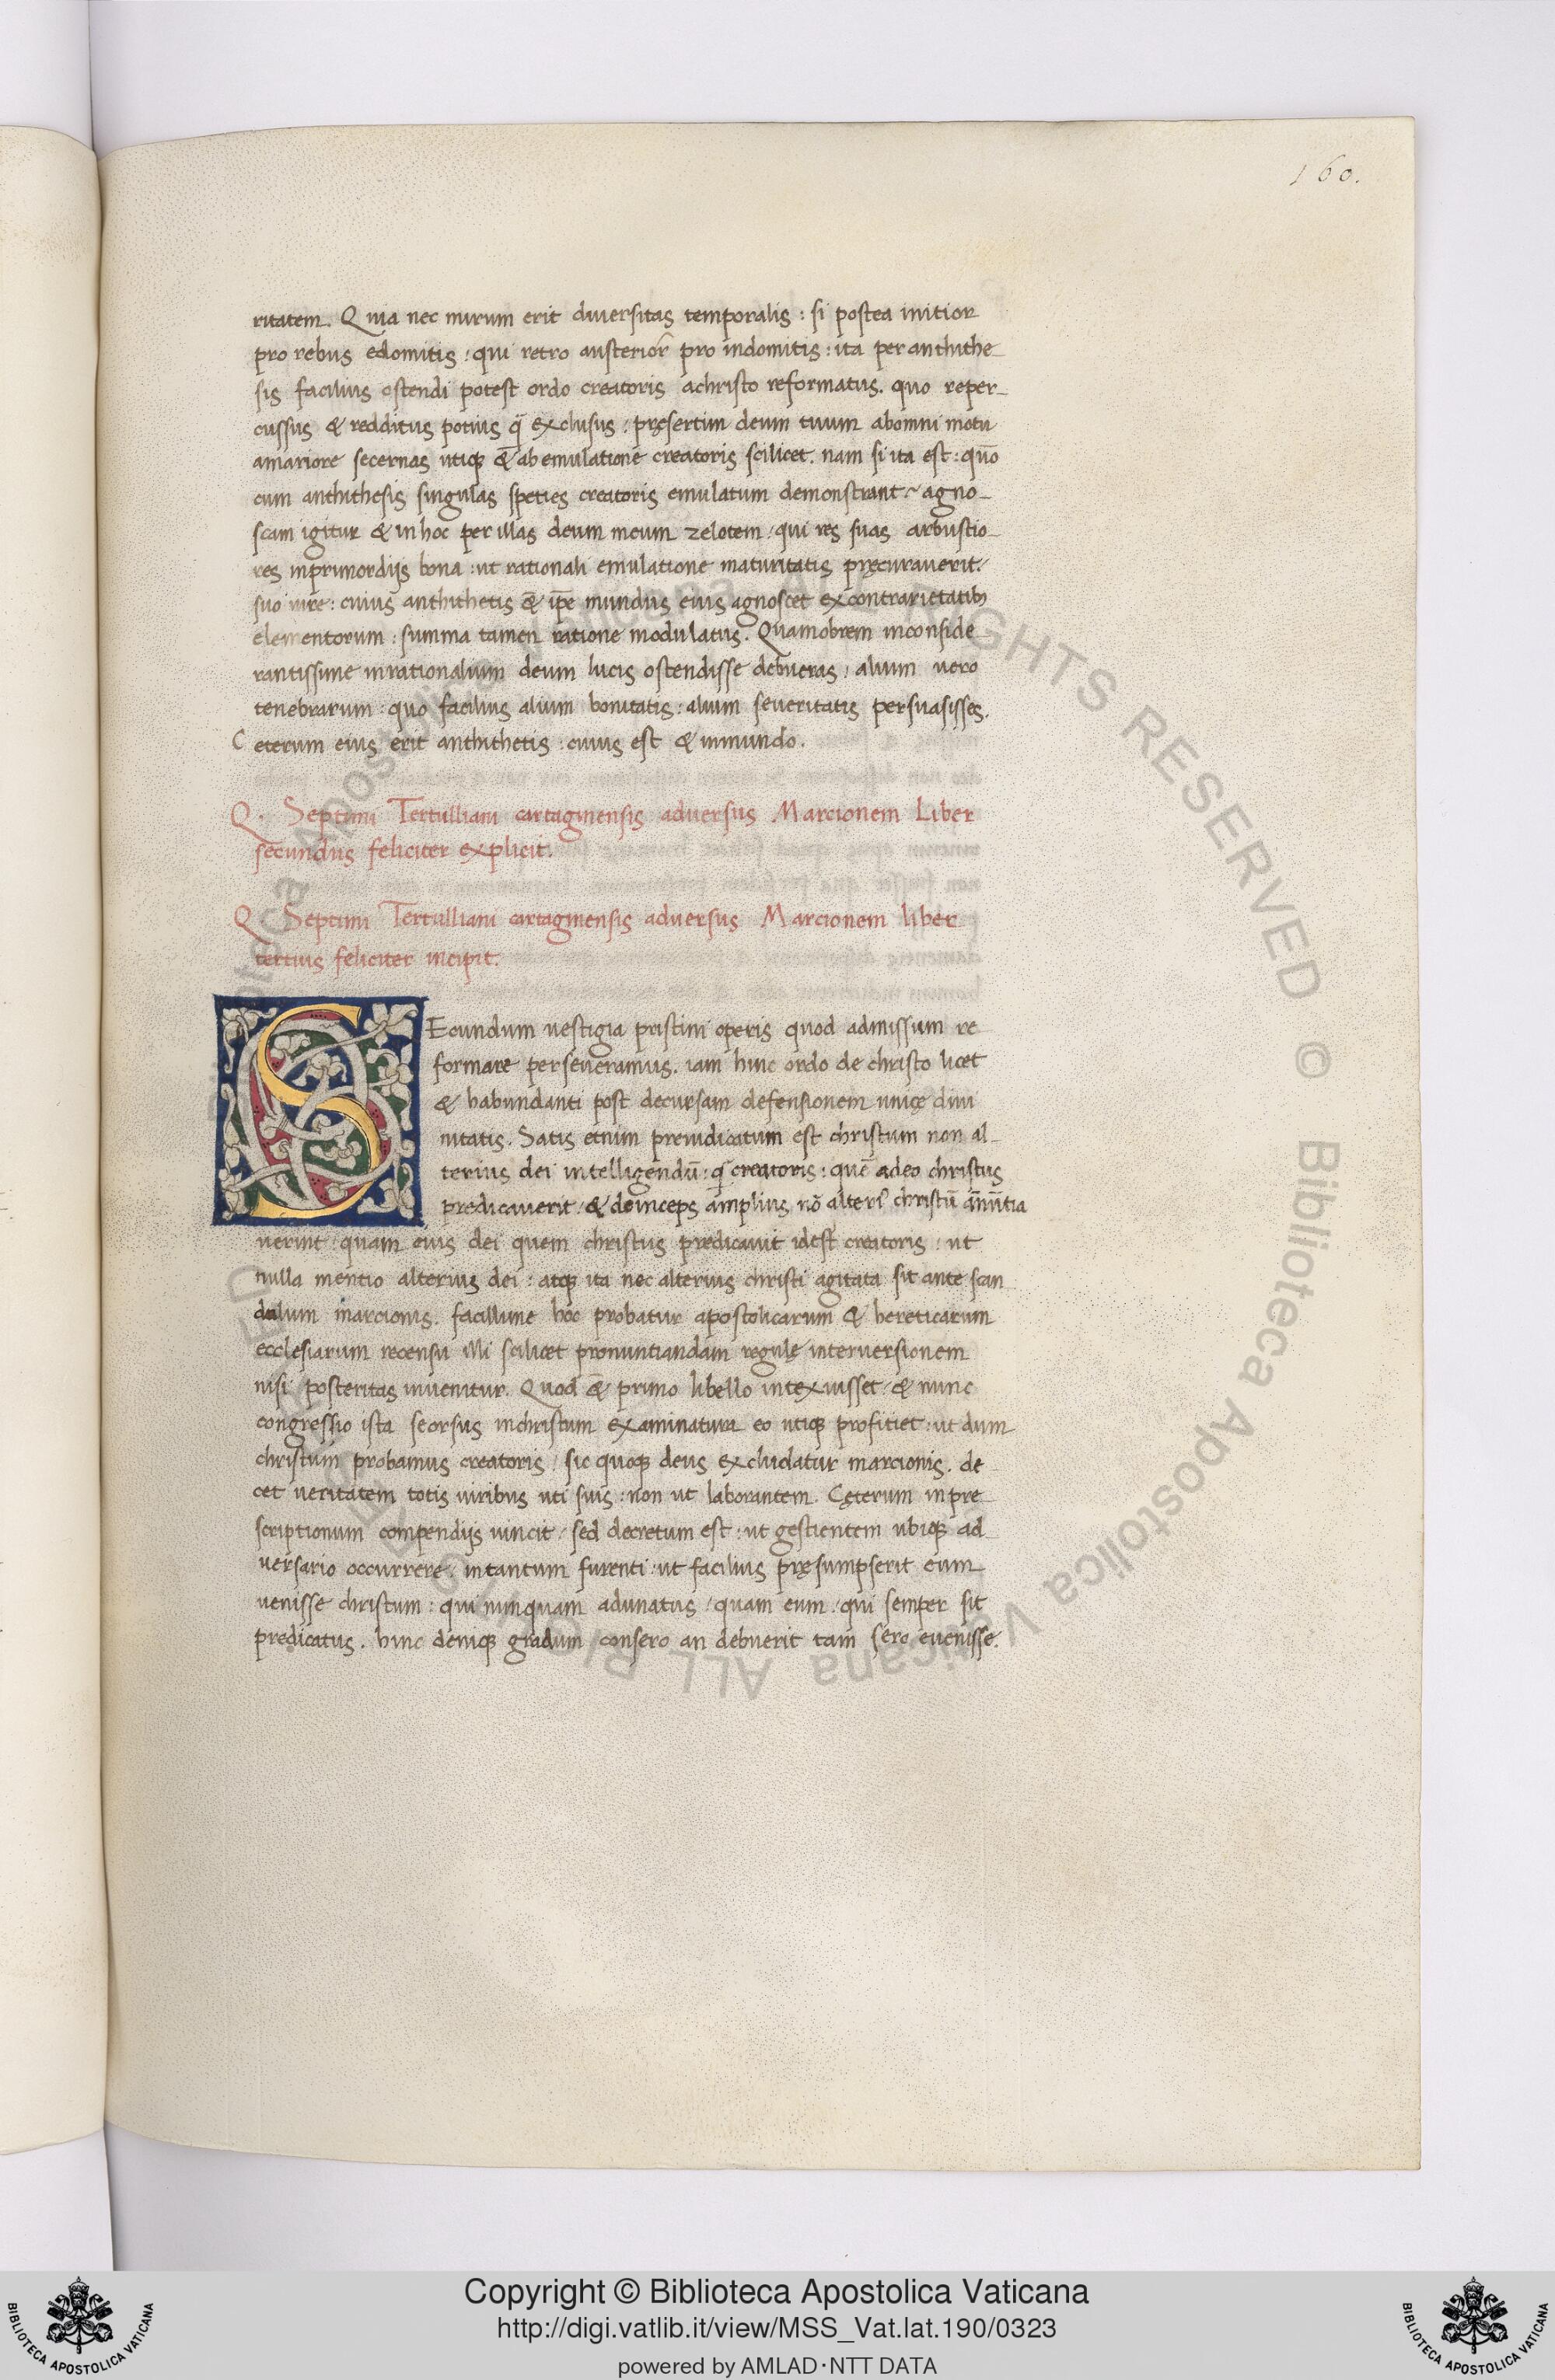 160.
ritatem. Quia nec mirum erit diversitas temporalis : si postea mitior
pro rebus edomitis : qui retro austerior pro indomitis : ita per anthithe-
sis facilius ostendi potest ordo creatoris achristo reformatus. quo reper-
cussus & redditus potius q̃ exclusus : pręsertim deum tuum abomni motu
amariore secernas utiqꝫ &̃ ab emulatione creatoris scilicet. nam si ita est : quõ
cum anthithesis singulas speties creatoris emulatum demonstrant agno-
scam igitur & in hoc per illas deum meum zelotem / qui res suas arbustio-
res inprimordijs bona : ut rationali emulatione maturitatis pręcuraverit /
suo iure : cuius anthithetis &̃ ip̃e mundus eius agnoscet excontrarietatibꝫ
elementorum : summa tamen ratione modulatus. Quamobrem inconside
rantissime inrationalium deum lucis ostendisse debueras / alium vero
tenebrarum : quo facilius alium bonitatis : alium severitatis persuasisses.
Ceterum eius erit anthithetis : cuius est & inmundo.
Q. Septimi Tertulliani cartaginensis adversus Marcionem Liber
secundus feliciter explicit.
Q Septimi Tertulliani cartaginensis adversus Marcionem liber
tertius feliciter incipit.
SEcundum vestigia pristini operis quod admissum re
formare perseveramus. iam hinc ordo de christo licet
& habundanti post decursam defensionem unicę divi
nitatis. Satis etnim preiudicatum est christum non al-
terius dei intelligendũ : q̃ creatoris : quẽ adeo christus
predicaverit / & deinceps amplius nõ alteri christũ ãnũtia
verint : quam eius dei quem christus predicavit idest creatoris : ut
nulla mentio alterius dei : atqꝫ ita nec alterius christi agitata sit ante scan
dalum marcionis. facillime hoc probatur apostolicarum & hereticarum
ecclesiarum recensu illi scilicet pronuntiandam regulę interversionem
nisi posteritas invenitur. Quod &̃ primo libello intexuisset / & nunc
congressio ista seorsus inchristum examinatura eo utiqꝫ profitiet : ut dum
christum probamus creatoris / sic quoqꝫ deus excludatur marcionis. de
cet veritatem totis viribus uti suis : non ut laborantem. Cęterum in pre-
scriptionum compendijs vincit / sed decretum est : ut gestientem ubiqꝫ ad
versario occurrere : intantum furenti : ut facilius pręsumpserit eum
venisse christum : qui nunquam adunatus / quam eum / qui semper sit
predicatus. hinc deniqꝫ gradum consero an debuerit tam sero evenisse.
Copyright © Biblioteca Apostolica Vaticana
http://digi.vatlib.it/view/MSS_Vat.lat.190/0323
powered by AMLAD·NTT DATA
BIBLIOTECA APOSTOLICA VATICANA
BIBLIOTECA APOSTOLICA VATICANA